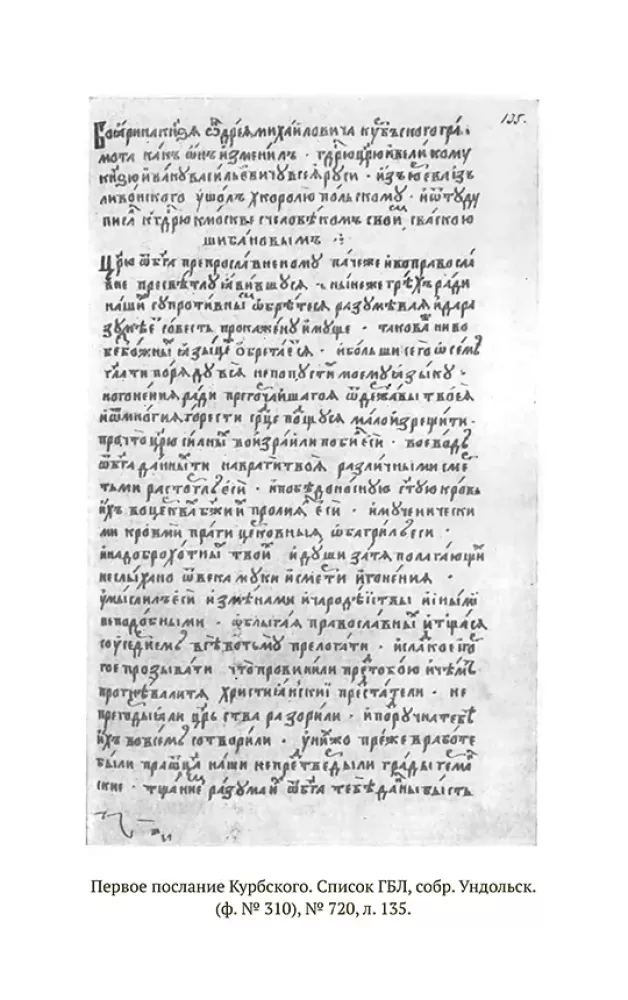 135.
Боѧрина кнѧзѧ Ѡдрѣѧ михаиловича кꙋрбъского гра
мота какъ ѡнъ изменилъ · гдрю црю и великому
кнѕю ивану васильевичу всеѧ руси · изъ юевлиз
ливонского ушолъ х королю польскому · и ѿтуду
писа к гдрю к москве с человѣкомъ свои с васкою
шибановымъ
Црю ѿ бга препрославленому паче же и во правосла
вие пресвѣтлу ѧвившусѧ · нынеже грѣхъ ради
наши супротивны ѡбрѣтесѧ разумѣваѧи да ра
зумѣе совесть прокажену имуще · такова ни во
безбожны ѧзыце обретаесѧ · и больши сего ѡ семъ
глати порѧду всѧ не попусти моему ѧзыку ·
гонениѧ ради прегорчаишаго ѿ державы твоеѧ
и ѿ многиѧ горести срца потщусѧ мало изрещи ти ·
про что црю силны во израили поби еси · и воеводъ
ѿ бга данны ти на враги твоѧ различными сме
тьми расторглъ еси · и победоносную стую кровь
ихъ во црква бжии пролиѧ еси · и мученически
ми кровми праги церковныѧ ѡбагрилъ еси ·
и на доброхотны твои и души за тѧ полагающи
неслыхано ѿ века муки и смерти и гонениѧ ·
умыслилъ еси изменами и чародеиствы и иными
неподобными · ѡблыгаѧ православны и тщасѧ
со усердиемъ свѣтъ во тьму прелогати · и слакое го
рое прозывати что провинили пре тобою и чемъ
прогнѣвали тѧ христианскии предстатели · не
прегорды ли црьства разорили · и поручна тебѣ
ихъ во всемъ сотворили · у ниҳже преже в работе
были праѿцы наши не претведы ли грады герма
ские · тщание разума и ѿ бга тебѣ даны бысть
Первое послание Курбского. Список ГБЛ, собр. Ундольск.
(ф. № 310), № 720, л. 135.